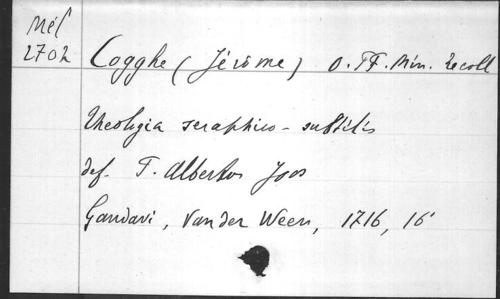 Mél
2702
Cogghe (Jérôme) O. FF. Min. Recoll
Theologia seraphico-subtilis
def. F. Albertus Joos
Gandavi, Van der Ween, 1716, 16°